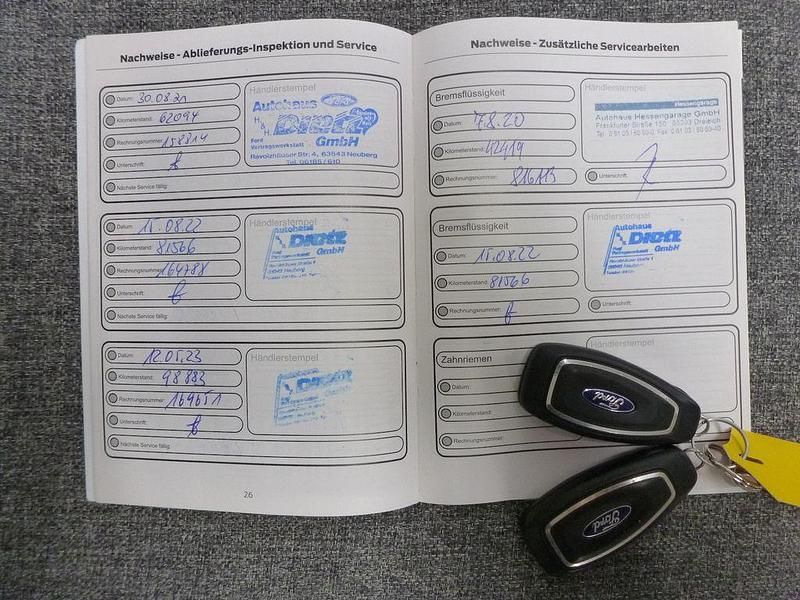 Nachweise - Ablieferungs-Inspektion und Service
Händlerstempel
Datum: 30.08.21
Kilometerstand: 62094
Rechnungsnummer: 158814
Unterschrift:
Nächste Service fällig:
Autohaus Ford
H & H Dietz
Ford Vertragswerkstatt GmbH
Ravolzhäuser Str. 4, 63543 Neuberg
Tel. 06185 / 610
Händlerstempel
Datum: 15.08.22
Kilometerstand: 81566
Rechnungsnummer: 164788
Unterschrift:
Nächste Service fällig:
Autohaus
Dietz
GmbH
Händlerstempel
Datum: 12.05.23
Kilometerstand: 98883
Rechnungsnummer: 169651
Unterschrift:
Nächste Service fällig:
Dietz
26
Nachweise - Zusätzliche Servicearbeiten
Bremsflüssigkeit
Händlerstempel
Datum: 7.8.20
Kilometerstand: 42419
Rechnungsnummer: 816113
Unterschrift:
Hessengarage
Autohaus Hessengarage GmbH
Frankfurter Straße 150 63303 Dreieich
Bremsflüssigkeit
Händlerstempel
Datum: 15.08.22
Kilometerstand: 81566
Rechnungsnummer:
Unterschrift:
Autohaus
Dietz
GmbH
Zahnriemen
Händlerstempel
Datum:
Kilometerstand:
Rechnungsnummer:
Ford
Ford